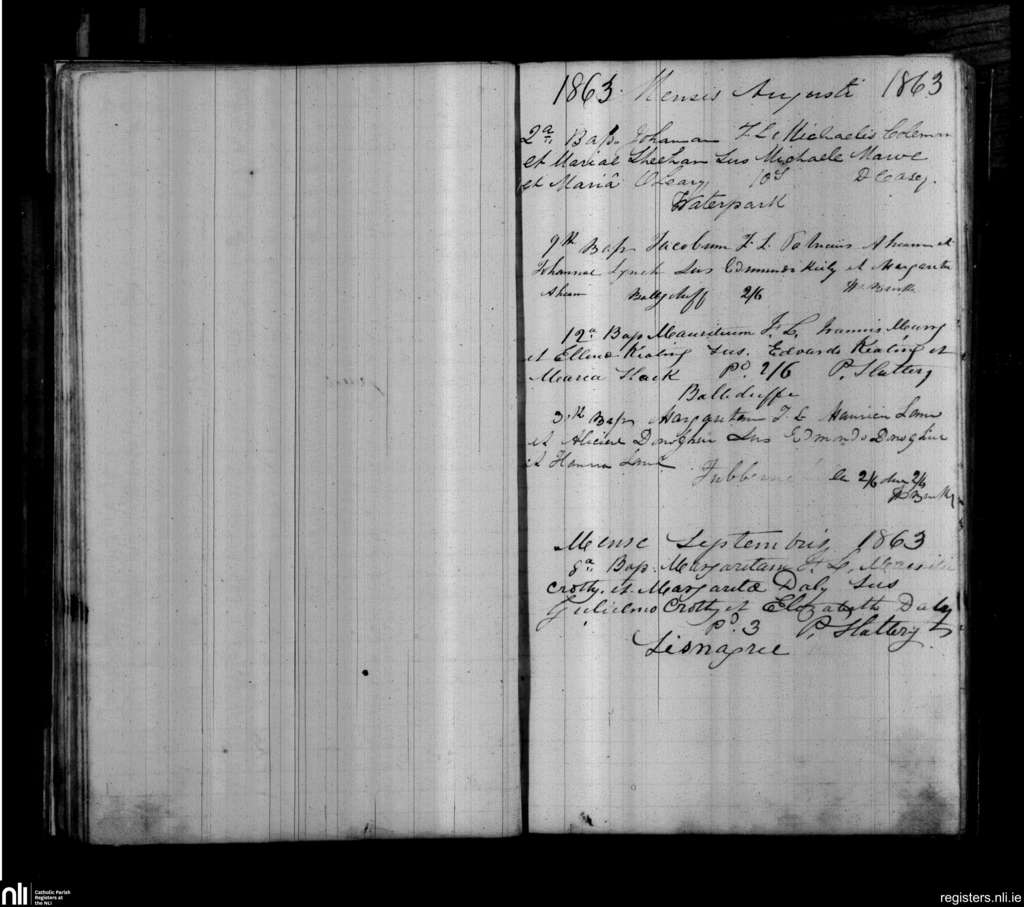 1863. Mensis Augusti 1863
2a. Bap. Johannam F. L. Michaelis Coleman
et Mariae Sheehan Sus Michaele Mawe
et Mariâ O'Leary, 10S D Casey.
Waterpark
9th Bap Jacobum F. L. Patricii Ahearn et
Johannae Lynch Sus Edmundo Kiely et Margarita
Ahearn Ballyduff 2/6 Burke
12a Bap Mauritium F. L. Joannis Meary
et Ellena Keating Sus. Edvardo Keating et
Mauria Slack Pd. 2/6 P. Slattery
Balliduffe
3th Bap Margaritam F. L. Mauricii Lane
et Aliciae Donoghue Sus Edmondo Donoghue
et Hanna Lane
2/6 2/6
Burke
Mense Septembris 1863
8a. Bap. Margaritam F. L.
Crotty. et Margaritae Daly Sus
Gulielmo Crotty et Elizabeth Daly
Pd. 3 P. Slattery
Lisnagree
nli Catholic Parish
Registers at
the NLI
registers.nli.ie